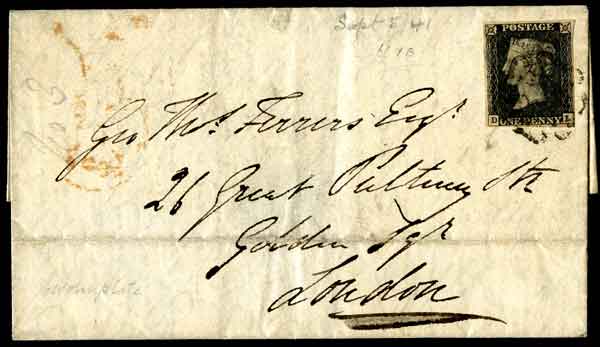 Sept 5 41
POSTAGE
D ONE PENNY L
Geo Thos. Ferrers Esqr.
26 Great Pultney Str
Golden Sqr
London
incomplete